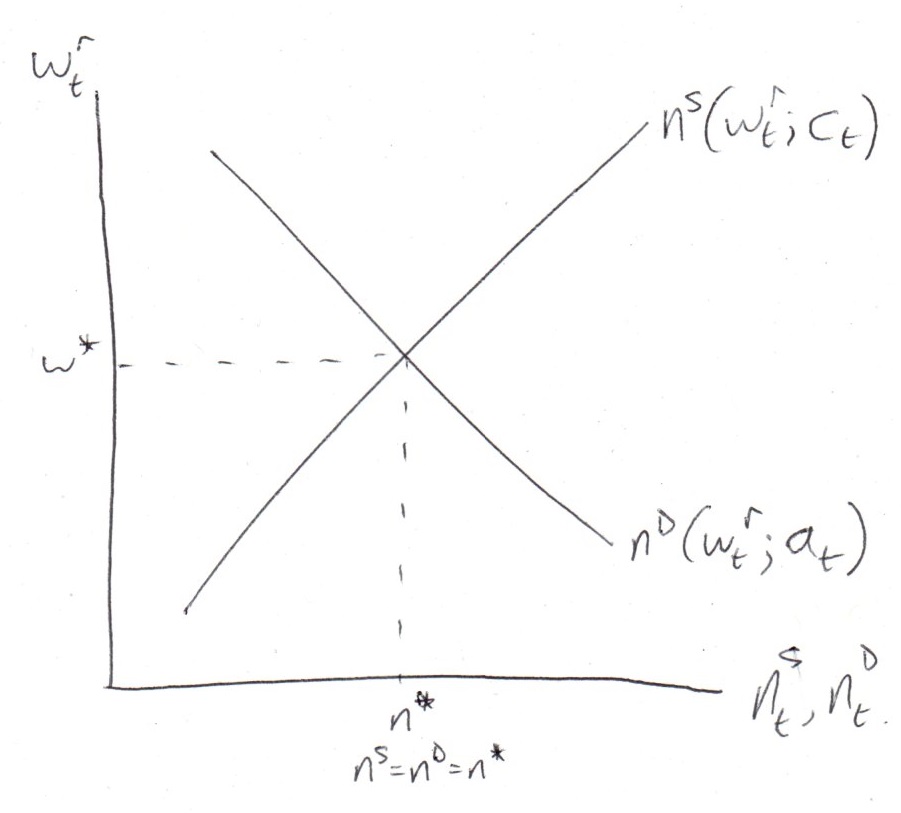 w_t^r
n^S(w_t^r; c_t)
w*
n^D(w_t^r; a_t)
n_t^S, n_t^D.
n*
n^S=n^D=n*